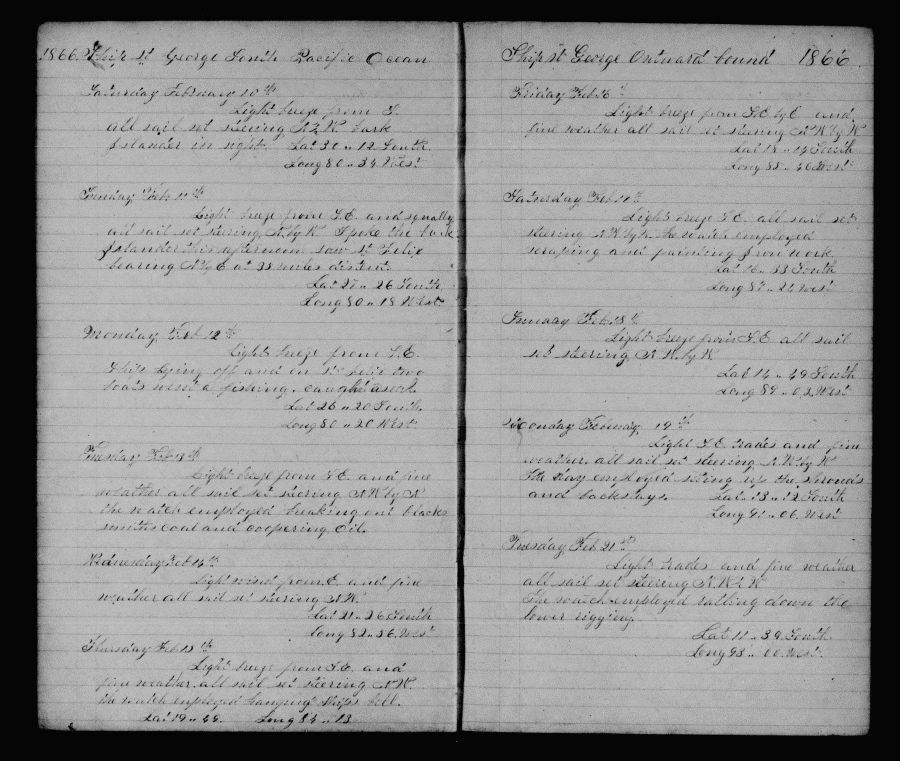 1866. Ship St George South Pacific Ocean
Saturday February 10th
Light breeze from S.
all sail set steering N.W. bark
Islander in sight. Lat 30 " 12 South
Long 80 " 34 West
Sunday Feb 11th
Light breeze from S.E. and squally
all sail set steering N. by W. Spoke the bark
Islander this afternoon saw St Felix
bearing N by E at 35 miles distent.
Lat 27 " 26 South
Long 80 " 18 West
Monday Feb 12th
Light breeze from S.E.
Ship lying off and on St Felix two
boats went a fishing. caught
Lat 26 " 20 South.
Long 80 " 20 West
Tuesday Feb 13th
Light breeze from S.E. and fine
weather all sail set steering N.W. by N
the watch employed breaking out black
smiths coal and coopering Oil.
Wednesday Feb 14th
Light wind from E and fine
weather all sail set steering N.W.
Lat 21 " 26 South
Long 82 " 36. West
Thursday Feb 15th
Light breeze from S.E. and
fine weather. all sail set steering N.W.
the watch employed hanging Ships bell.
Lat 19 " 44. Long 84 " 13
Ship St George Outward bound 1866
Friday Feb 16th
Light breeze from S.E. by E and
fine weather all sail set steering N.W by W
Lat 18 " 14 South
Long 85 " 46 West
Saturday Feb 17th
Light breeze S.E. all sail set
steering N.W by W. the watch employed
scraping and painting Iron work.
Lat 16 " 33 South
Long 87 " 24 West
Sunday Feb 18th
Light breeze from S.E. all sail
set steering N.W. by W
Lat 14 " 49 South
Long 89 " 02. West
Monday February 19th
Light S.E. trades and fine
weather. all sail set steering N.W. by W
the day employed seting up the shrouds
and backstays. Lat. 13 " 12 South
Long 91 " 06. West
Tuesday Feb 21st
Light trades and fine weather
all sail set steering N.W.
The watch employed ratling down the
lower rigging
Lat 11 " 39 South.
Long 93 " 00. West.